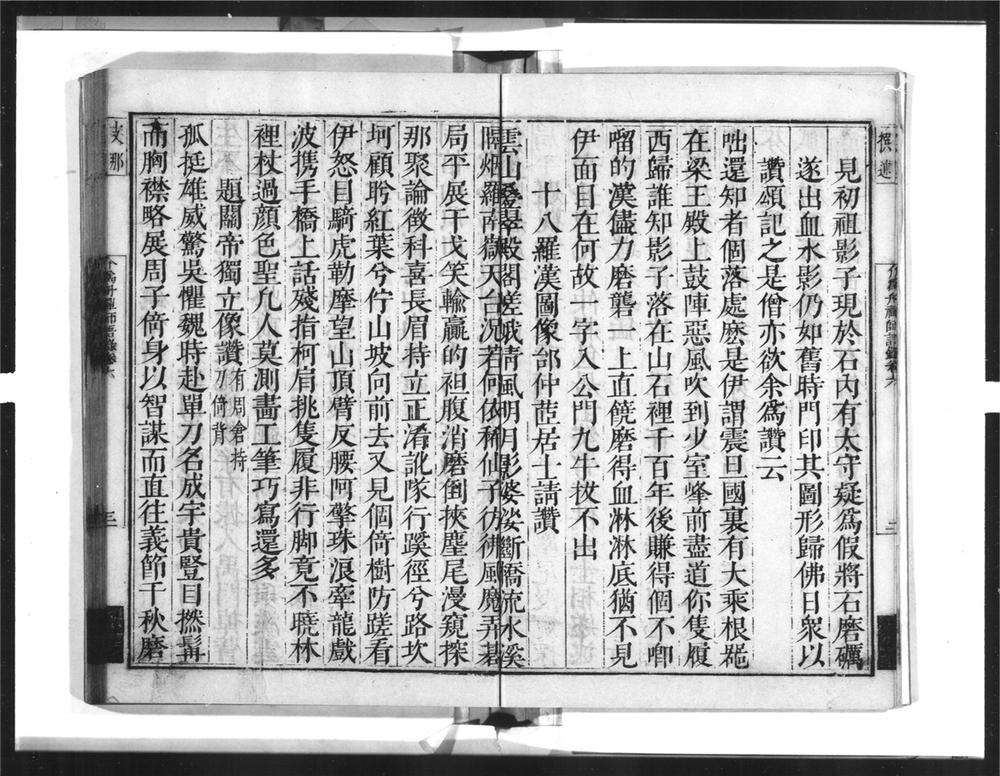 見初祖影子現於石內有大守疑爲假將石磨礪
遂出血水影仍如舊時門印其圖形歸佛日衆以
讚頌記之是僧亦欲余爲讚云
咄還知者個落處麽是伊謂震旦國裏有大乘根
在梁王殿上鼓陣惡風吹到少室峰前盡道你隻履
西歸誰知影子落在山石裡千百年後賺得個不唧
㗧的漢儘力磨礱一上直饒磨得血淋淋底猶不見
伊面目在何故一字入公門九牛拔不出
十八羅漢圖像邰仲茝居士請讚
雲山疊翠殿閣嵯峨清風明月影婆娑斷橋流水溪
隈烟羅南嶽天台況若何依稀仙子彷彿風魔弄碁
局平展干戈笑輸贏的袒腹消磨倒挾麈尾漫窺探
那聚論徵科喜長眉持立正淆訛隊行蹊徑兮路坎
坷顧盻紅葉兮佇山坡向前去又見個倚樹防蹉看
伊怒目騎虎勒摩望山頂臂反腰阿擎珠浪牽龍戲
波携手橋上話殘指柯肩挑隻履非行脚竟不曉林
裡杖過顏色聖凢人莫測畵工筆巧寫還多
題關帝獨立像讚有周倉持刀倚背
孤挺雄威驚吳懼魏時赴單刀名成宇貴豎目撚髯
而胸襟略展周子倚身以智謀而直往義節千秋磨
撰述
二
支那
三